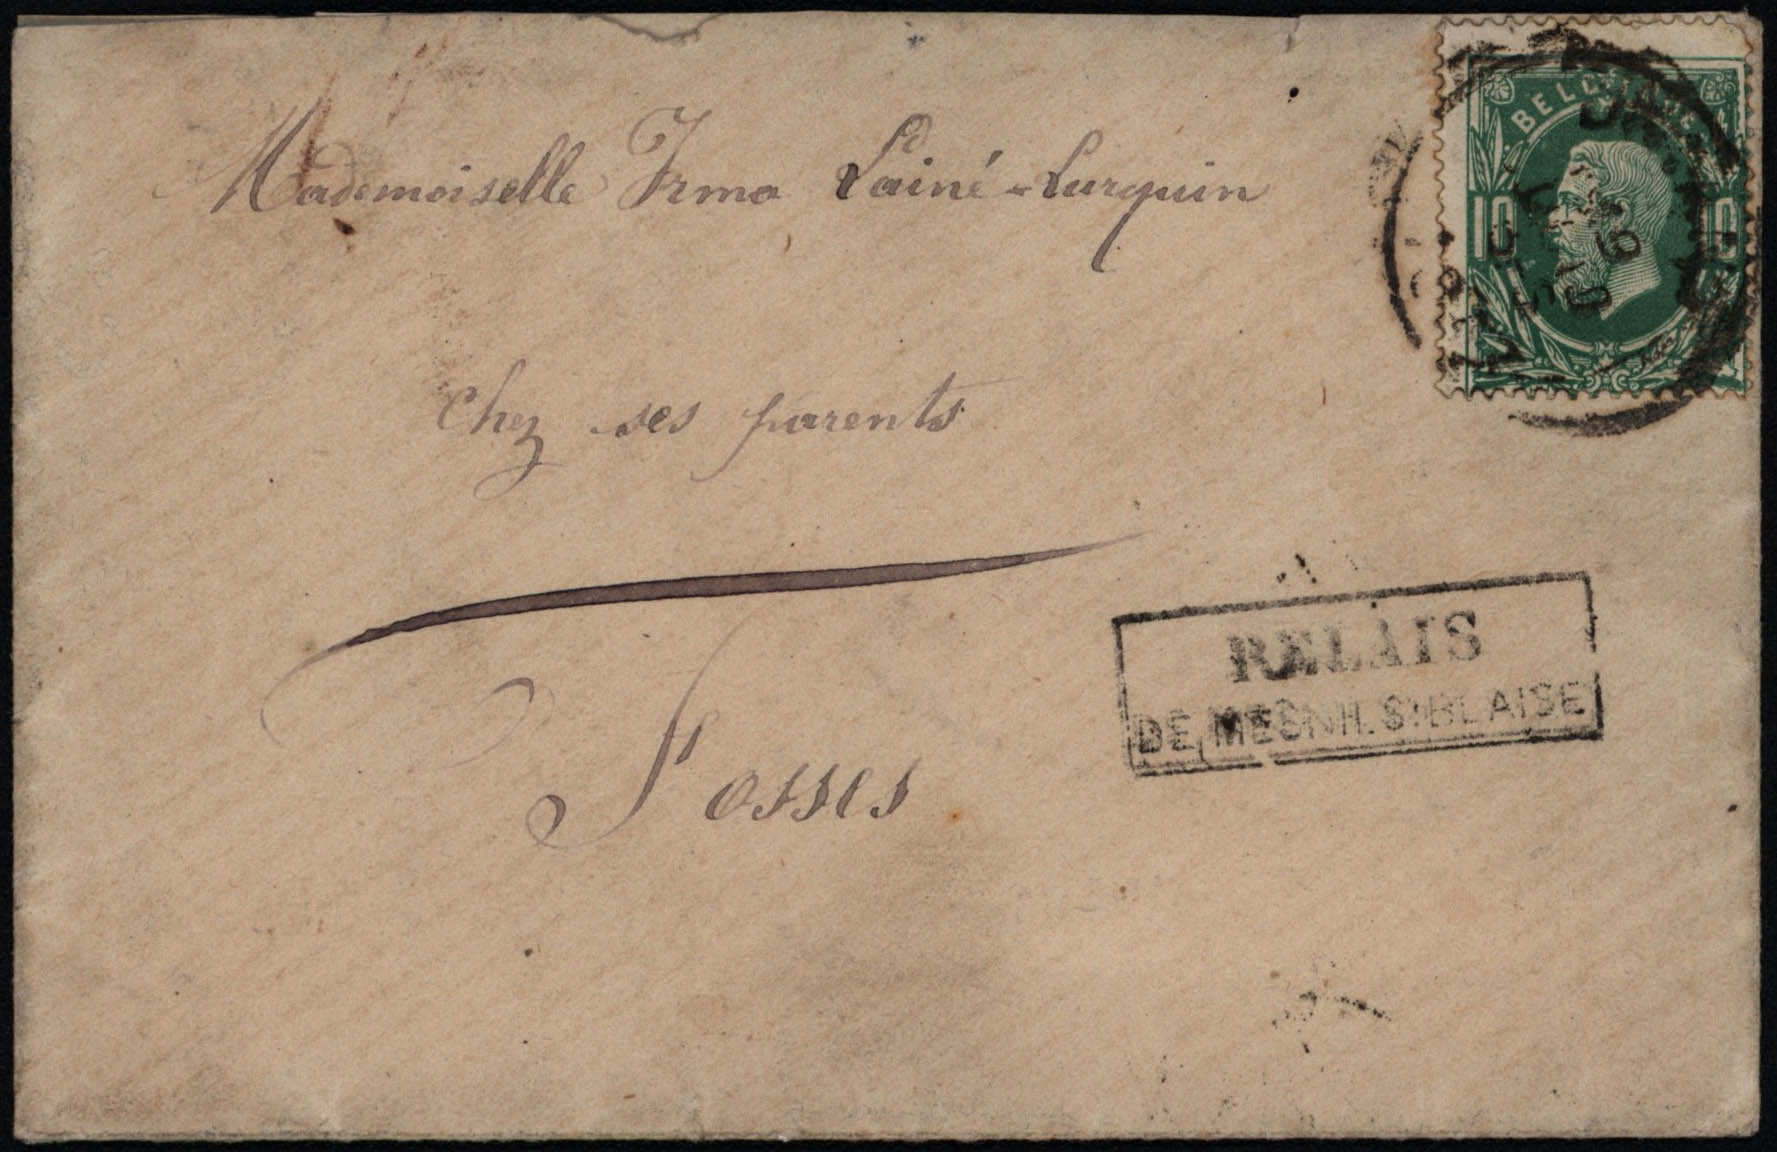 Mademoiselle Irma Lainé-Lurquin
BELGIQUE
10 10
chez ses parents
RELAIS
DE MESNIL ST BLAISE
Fosses